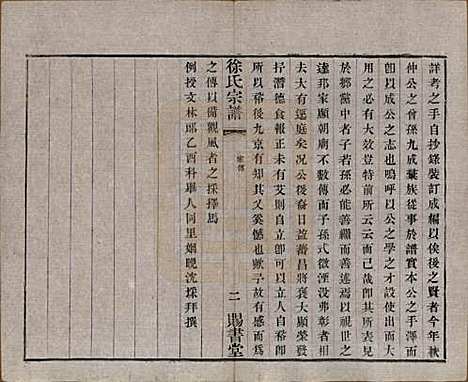 詳考之手自抄錄裝訂成編以俟後之賢者今年秋
仲公之曾孫九成葉族從事於譜實本公之手澤而
卽以成公之志也嗚呼以公之學之才設使出而大
用之必有大效豈特前所云云而已哉卽其所表見
於鄉黨中者子若孫必能善繼而善述焉以視世之
達邦家顯朝廟不數傳而子孫式微湮沒弗彰者相
去大有逕庭矣况公後裔日益蕃昌將褒大顯榮發
抒潛德食報正未有艾則自立卽可以立人自裕卽
所以裕後九京有知其又奚憾也歟予故有感而爲
之傳以備觀風者之採擇焉
例授文林郎乙酉科舉人同里姻晚沈採拜撰
徐氏宗譜
家傳
二
賜書堂